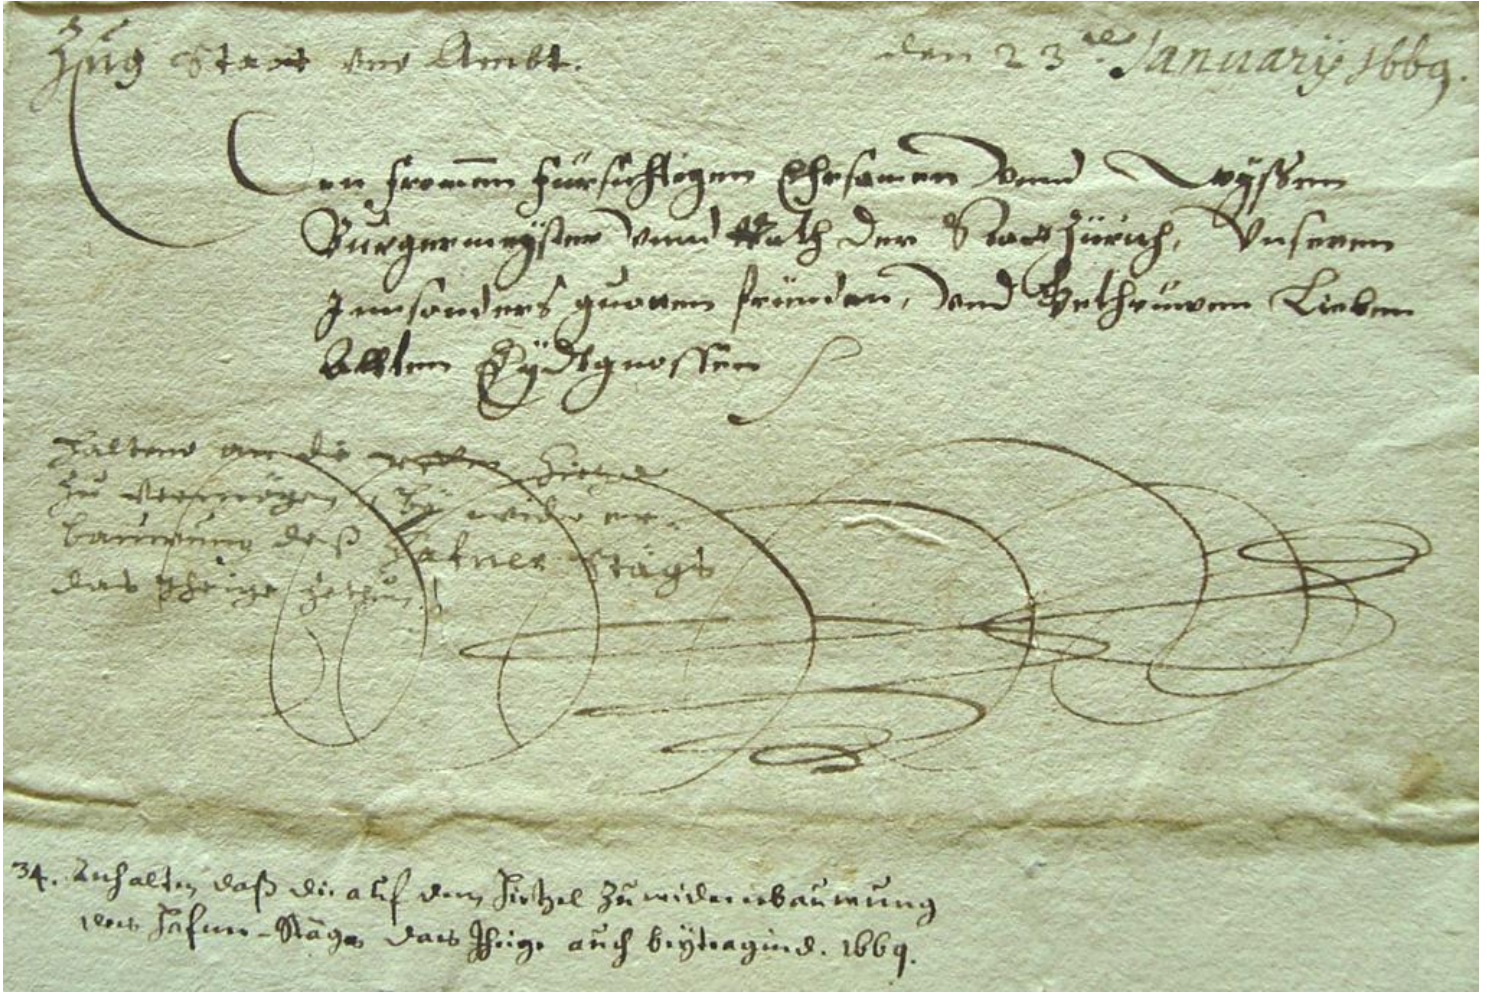 Zug Statt vnd Ambt. den 23.ten Januarij 1669.
Den fromen fürsichtigen Ehrsamen vnnd Wyssen
Burgermeyster vnnd Rath der Statt Zürich, Vnseren
Innsonders guotten fründen, vnd Gethrüwen Lieben
Allten Eydtgnossen
haltend an die
zu vermögen, by wider er-
bauwung deß Hafner Stägs
das Ihrige zethun.
34. Anhalten daß die auf dem Hirtzel zu widererbauwung
des Hafner-Stägs das Ihrige auch beytragind. 1669.